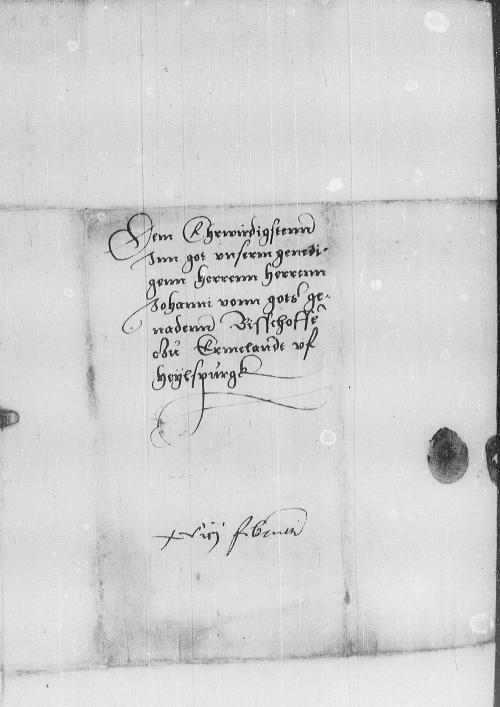 Dem Ehrwirdigstenn
Inn got unserm genedi-
genn herrenn herrenn
Johanni vonn gots ge-
nadenn Bisschoffe
czu Ermelandt uf
Heylspurgk
xviij febru